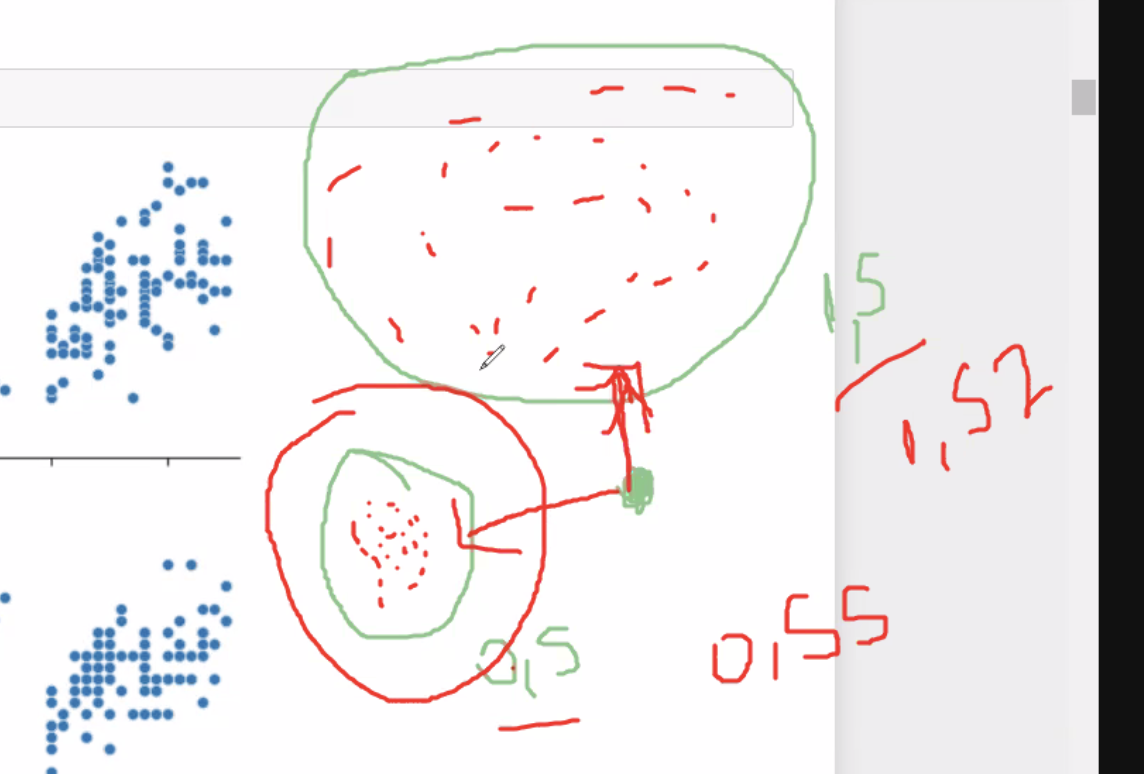 1,5
1,57
0,5
0,55